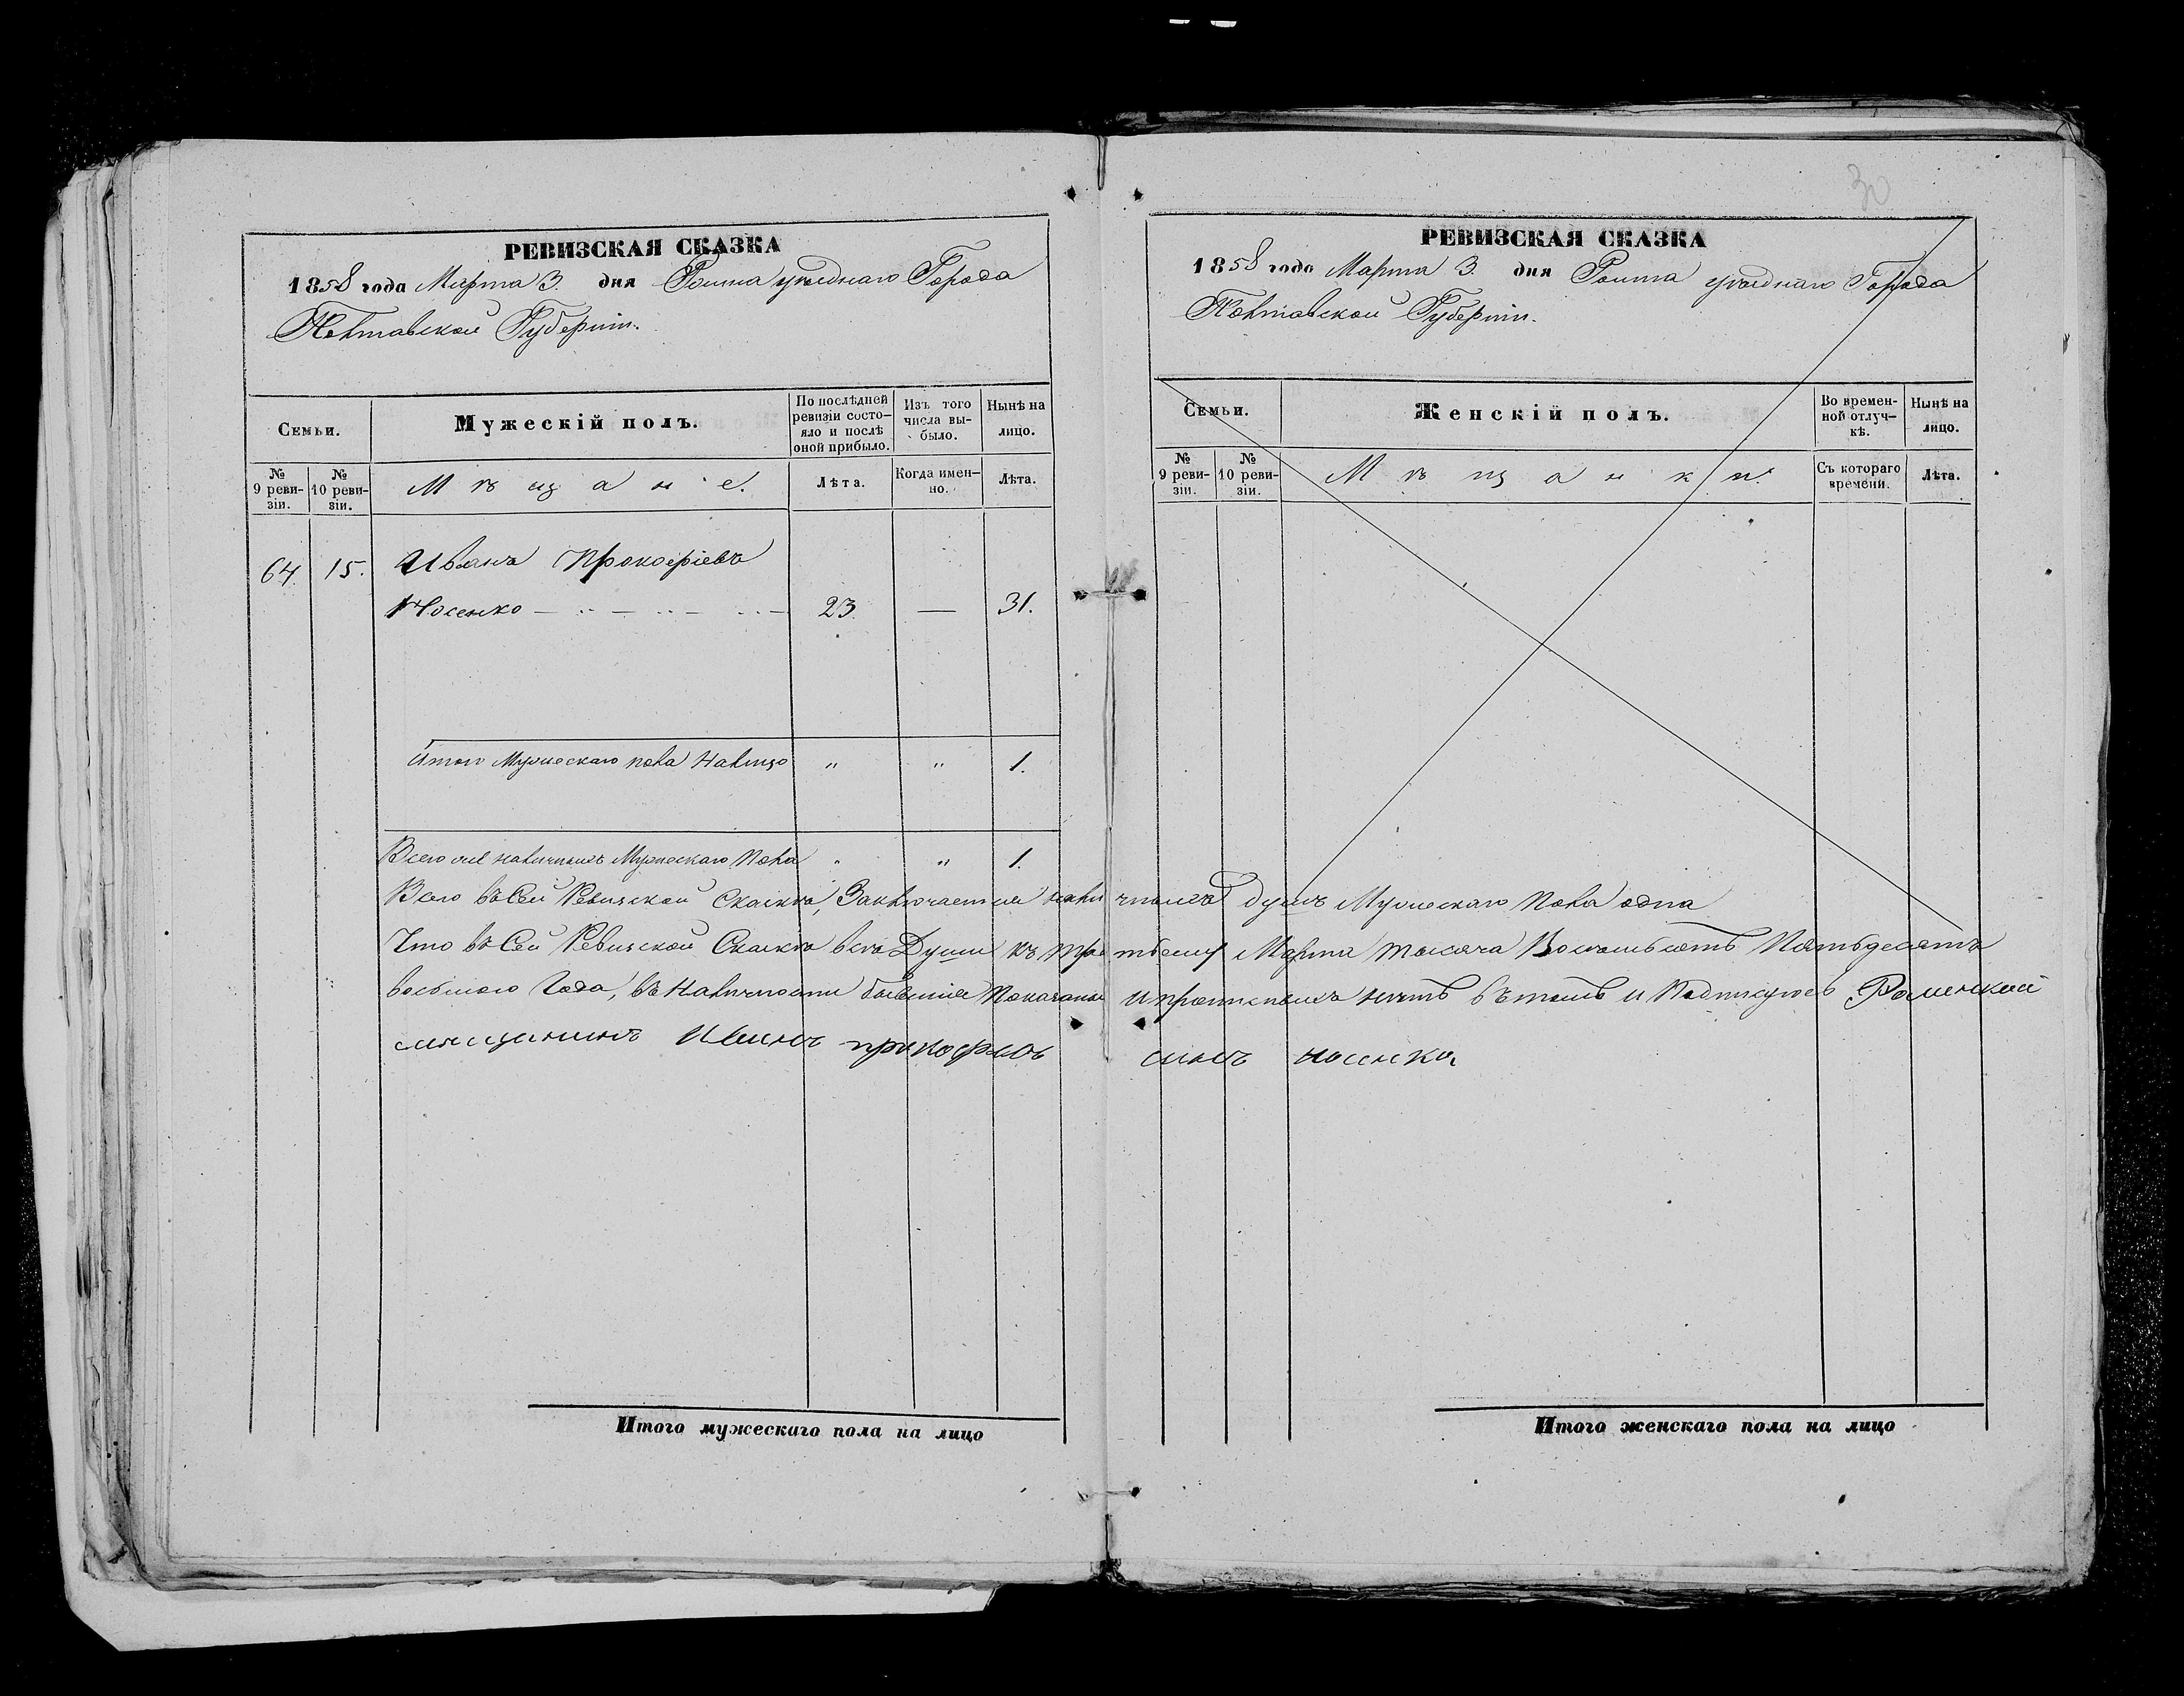 30
РЕВИЗСКАЯ СКАЗКА
1858 года Марта 3. дня Ромна уѣзднаго Города
Полтавской Губерніи.
Семьи.
Мужескій полъ.
По послѣдней ревизіи состо-яло и послѣ оной прибыло.
Изъ того числа вы-было.
Нынѣ на лицо.
№ 9 реви-зіи.
№ 10 реви-зіи.
Мѣщане.
Лѣта.
Когда имен-но.
Лѣта.
64. 15. Иванъ Прокофіевъ
Носенко 23. — 31.
Итого Мужескаго пола Налицо " " 1.
Всего наличныхъ Мужескаго Пола " " 1.
РЕВИЗСКАЯ СКАЗКА
1858 года Марта 3. дня Ромна уѣзднаго Города
Полтавской Губерніи.
Семьи.
Женскій полъ.
Во времен-ной отлуч-кѣ.
Нынѣ на лицо.
№ 9 реви-зіи.
№ 10 реви-зіи.
Мѣщанки.
Съ котораго времени.
Лѣта.
Всего въ Сей Ревизской Сказкѣ, Заключается наличныхъ душъ Мужескаго Пола одна
Что въ Сей Ревизской Сказкѣ всѣ Души къ третьему Марта тысяча Восемьсотъ Пятьдесятъ
восьмого Года, въ Наличности бывшіе Показаны и прописныхъ нѣтъ вътомъ и Подписуюсь Роменской
мещанинъ Иванъ прокофіевъ сынъ носенко
Итого мужескаго пола на лицо
Итого женскаго пола на лицо